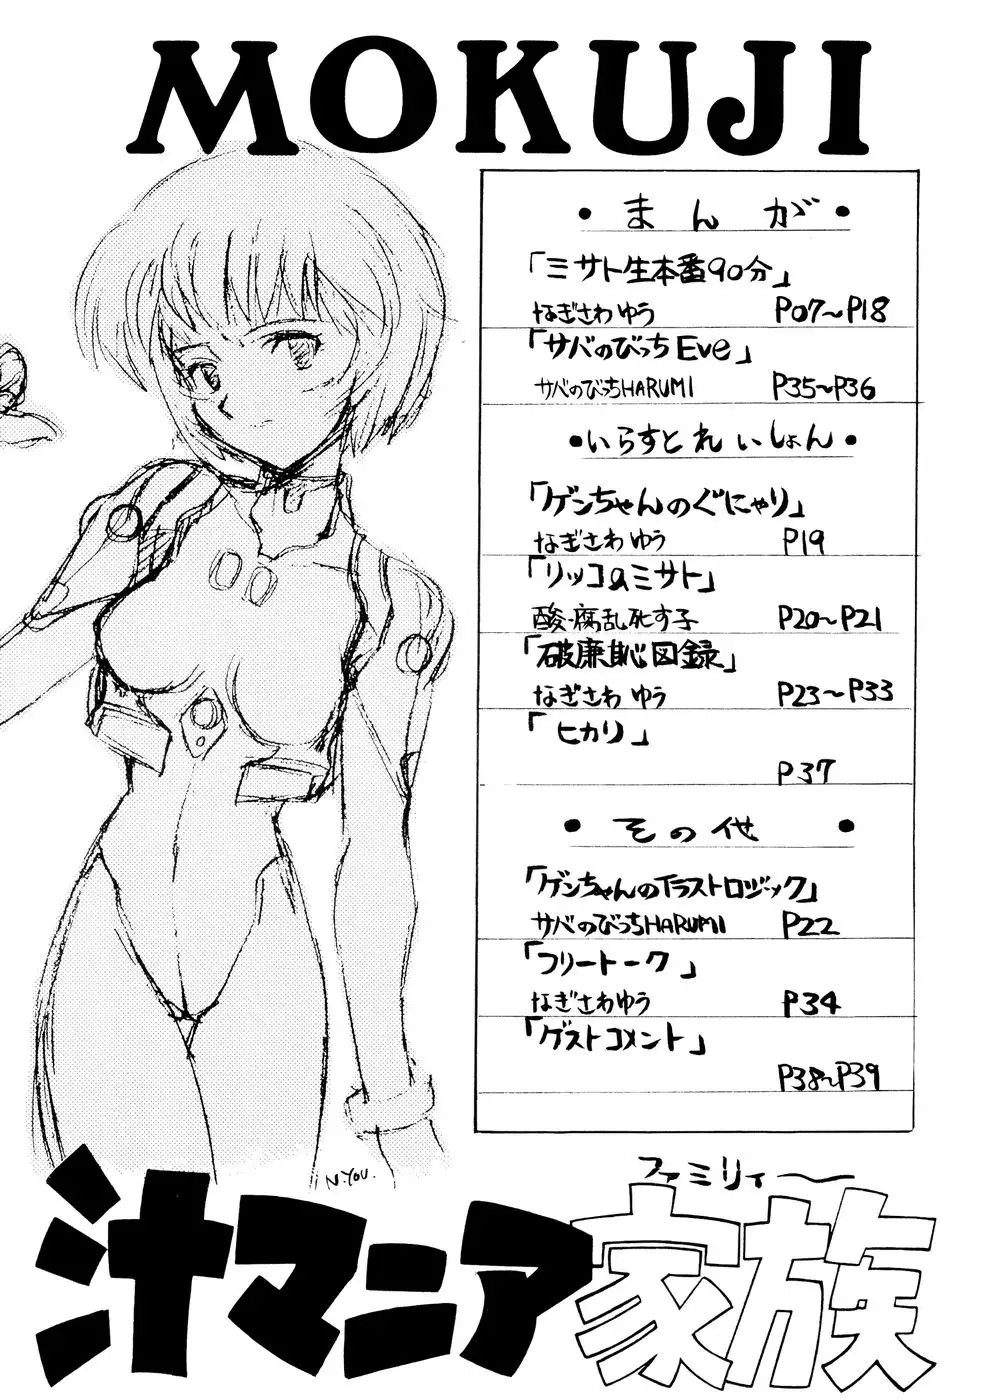 MOKUJI
・まんが・
「ミサト生本番90分」
なぎさわゆう P07〜P18
「サバのびっちEve」
サバのびっちHARUMI P35〜P36
・いらすとれいしょん・
「ゲンちゃんのぐにゃり」
なぎさわゆう P19
「リッコのミサト」
酸・腐乱死す子 P20〜P21
「破廉恥図録」
なぎさわゆう P23〜P33
「ヒカリ」
P37
・その他・
「ゲンちゃんのイラストロジック」
サバのびっちHARUMI P22
「フリートーク」
なぎさわゆう P34
「ゲストコメント」
P38〜P39
N.YOU.
ファミリィ〜
汁マニア家族